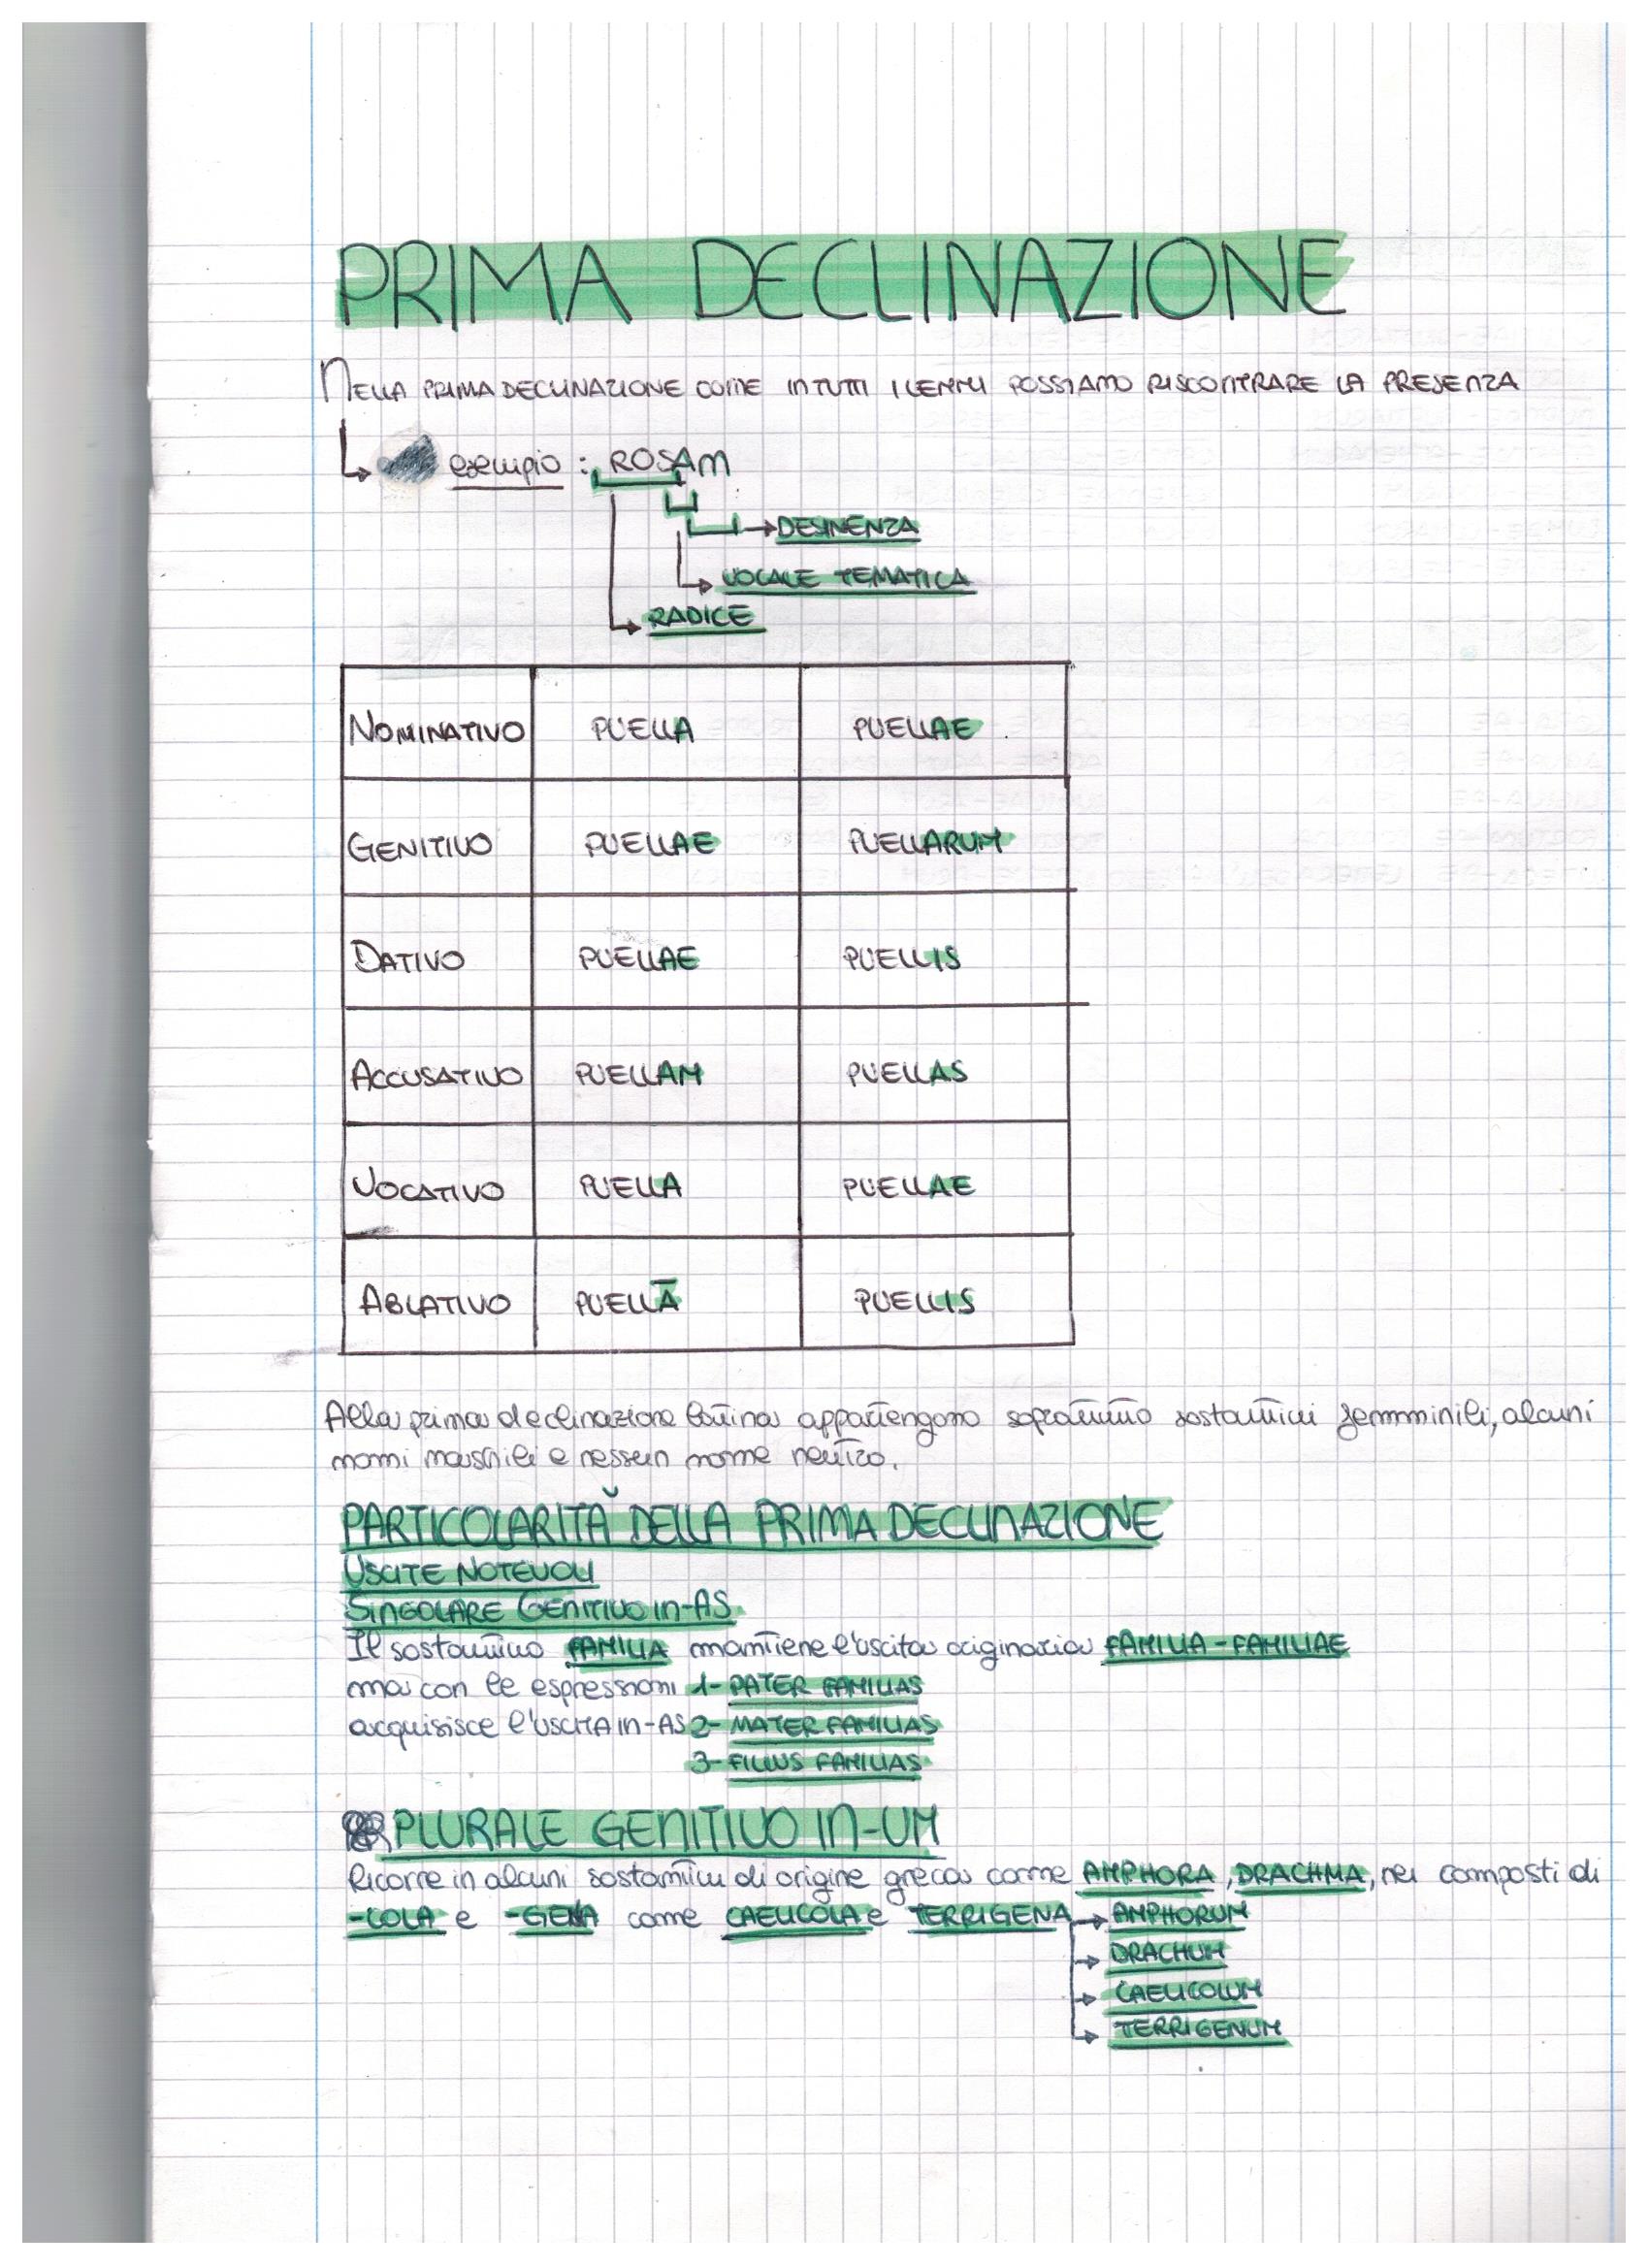 PRIMA DECLINAZIONE
NELLA PRIMA DECLINAZIONE COME IN TUTTI I LEMMI POSSIAMO RISCONTRARE LA PRESENZA
esempio : ROSAM
DESINENZA
VOCALE TEMATICA
RADICE
NOMINATIVO PUELLA PUELLAE
GENITIVO PUELLAE PUELLARUM
DATIVO PUELLAE PUELLIS
ACCUSATIVO PUELLAM PUELLAS
VOCATIVO PUELLA PUELLAE
ABLATIVO PUELLĀ PUELLIS
Alla prima declinazione latina appartengono soprattutto sostantivi femminili, alcuni
nomi maschili e nessun nome neutro.
PARTICOLARITÀ DELLA PRIMA DECLINAZIONE
USCITE NOTEVOLI
SINGOLARE GENITIVO IN-AS
Il sostantivo FAMILIA mantiene l'uscita originaria FAMILIA-FAMILIAE
ma con le espressioni 1- PATER FAMILIAS
acquisisce l'USCITA IN-AS 2- MATER FAMILIAS
3- FILIUS FAMILIAS
PLURALE GENITIVO IN-UM
Ricorre in alcuni sostantivi di origine greca come AMPHORA, DRACHMA, nei composti di
-COLA e -GENA come CAELICOLA e TERRIGENA → AMPHORUM
→ DRACHUM
→ CAELICOLUM
→ TERRIGENUM